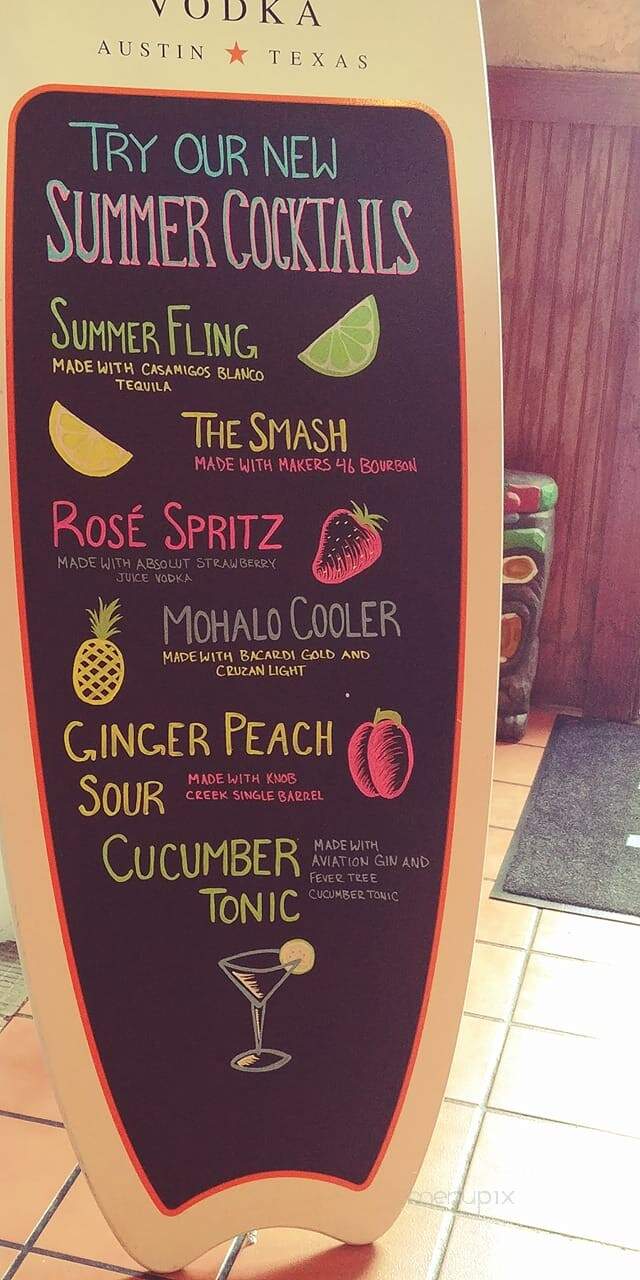 VODKA
AUSTIN ★ TEXAS
TRY OUR NEW
SUMMER COCKTAILS
SUMMER FLING
MADE WITH CASAMIGOS BLANCO
TEQUILA
THE SMASH
MADE WITH MAKERS 46 BOURBON
ROSÉ SPRITZ
MADE WITH ABSOLUT STRAWBERRY
JUICE VODKA
MOHALO COOLER
MADE WITH BACARDI GOLD AND
CRUZAN LIGHT
GINGER PEACH
SOUR
MADE WITH KNOB
CREEK SINGLE BARREL
CUCUMBER
TONIC
MADE WITH
AVIATION GIN AND
FEVER TREE
CUCUMBER TONIC
menupix